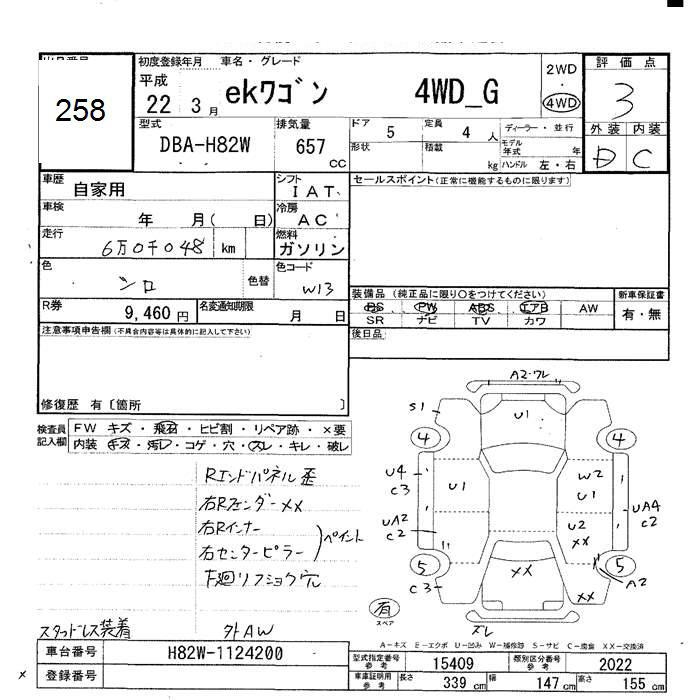 258
初度登録年月 車名・グレード
平成
22 3月 ekワゴン 4WD_G
2WD
4WD
評価点
3
外装 内装
D C
型式 排気量 ドア 5 定員 4 人 ディーラー・並行
DBA-H82W 657 CC 形状 積載 kg モデル年式 年
ハンドル 左・右
車歴 自家用 シフト IAT
セールスポイント(正常に機能するものに限ります)
車検 年 月( 日) 冷房 AC
走行 6万0千048 km 燃料 ガソリン
色 シロ 色替 色コード W13
R券 9,460円 名変通知期限 月 日
装備品 (純正品に限り○をつけてください) 新車保証書
PS PW ABS エアB AW 有・無
SR ナビ TV カワ
後日品
注意事項申告欄(不具合内容等は具体的に記入して下さい)
修復歴 有〔箇所 〕
検査員記入欄 FW キズ・飛石・ヒビ割・リペア跡・×要
内装 キズ・汚レ・コゲ・穴・スレ・キレ・破レ
Rエンドパネル歪
右Rフェンダーxx
右Rインナー
右センターピラー
ペイント
下廻リフショク穴
スタッドレス装着 外AW
A2・ワレ
S1 U1
4 4
U4 C3 U1 W2 U1 UA4 C2
UA2 C2 U2 XX
5 5
C3 XX XX A2
有
スペア
ズレ
A-キズ E-エクボ U-凹み W-補修跡 S-サビ C-腐食 XX-交換済
車台番号 H82W-1124200
登録番号
型式指定番号 参考 15409 類別区分番号 参考 2022
車庫証明用 参考 長さ 339 cm 幅 147 cm 高さ 155 cm